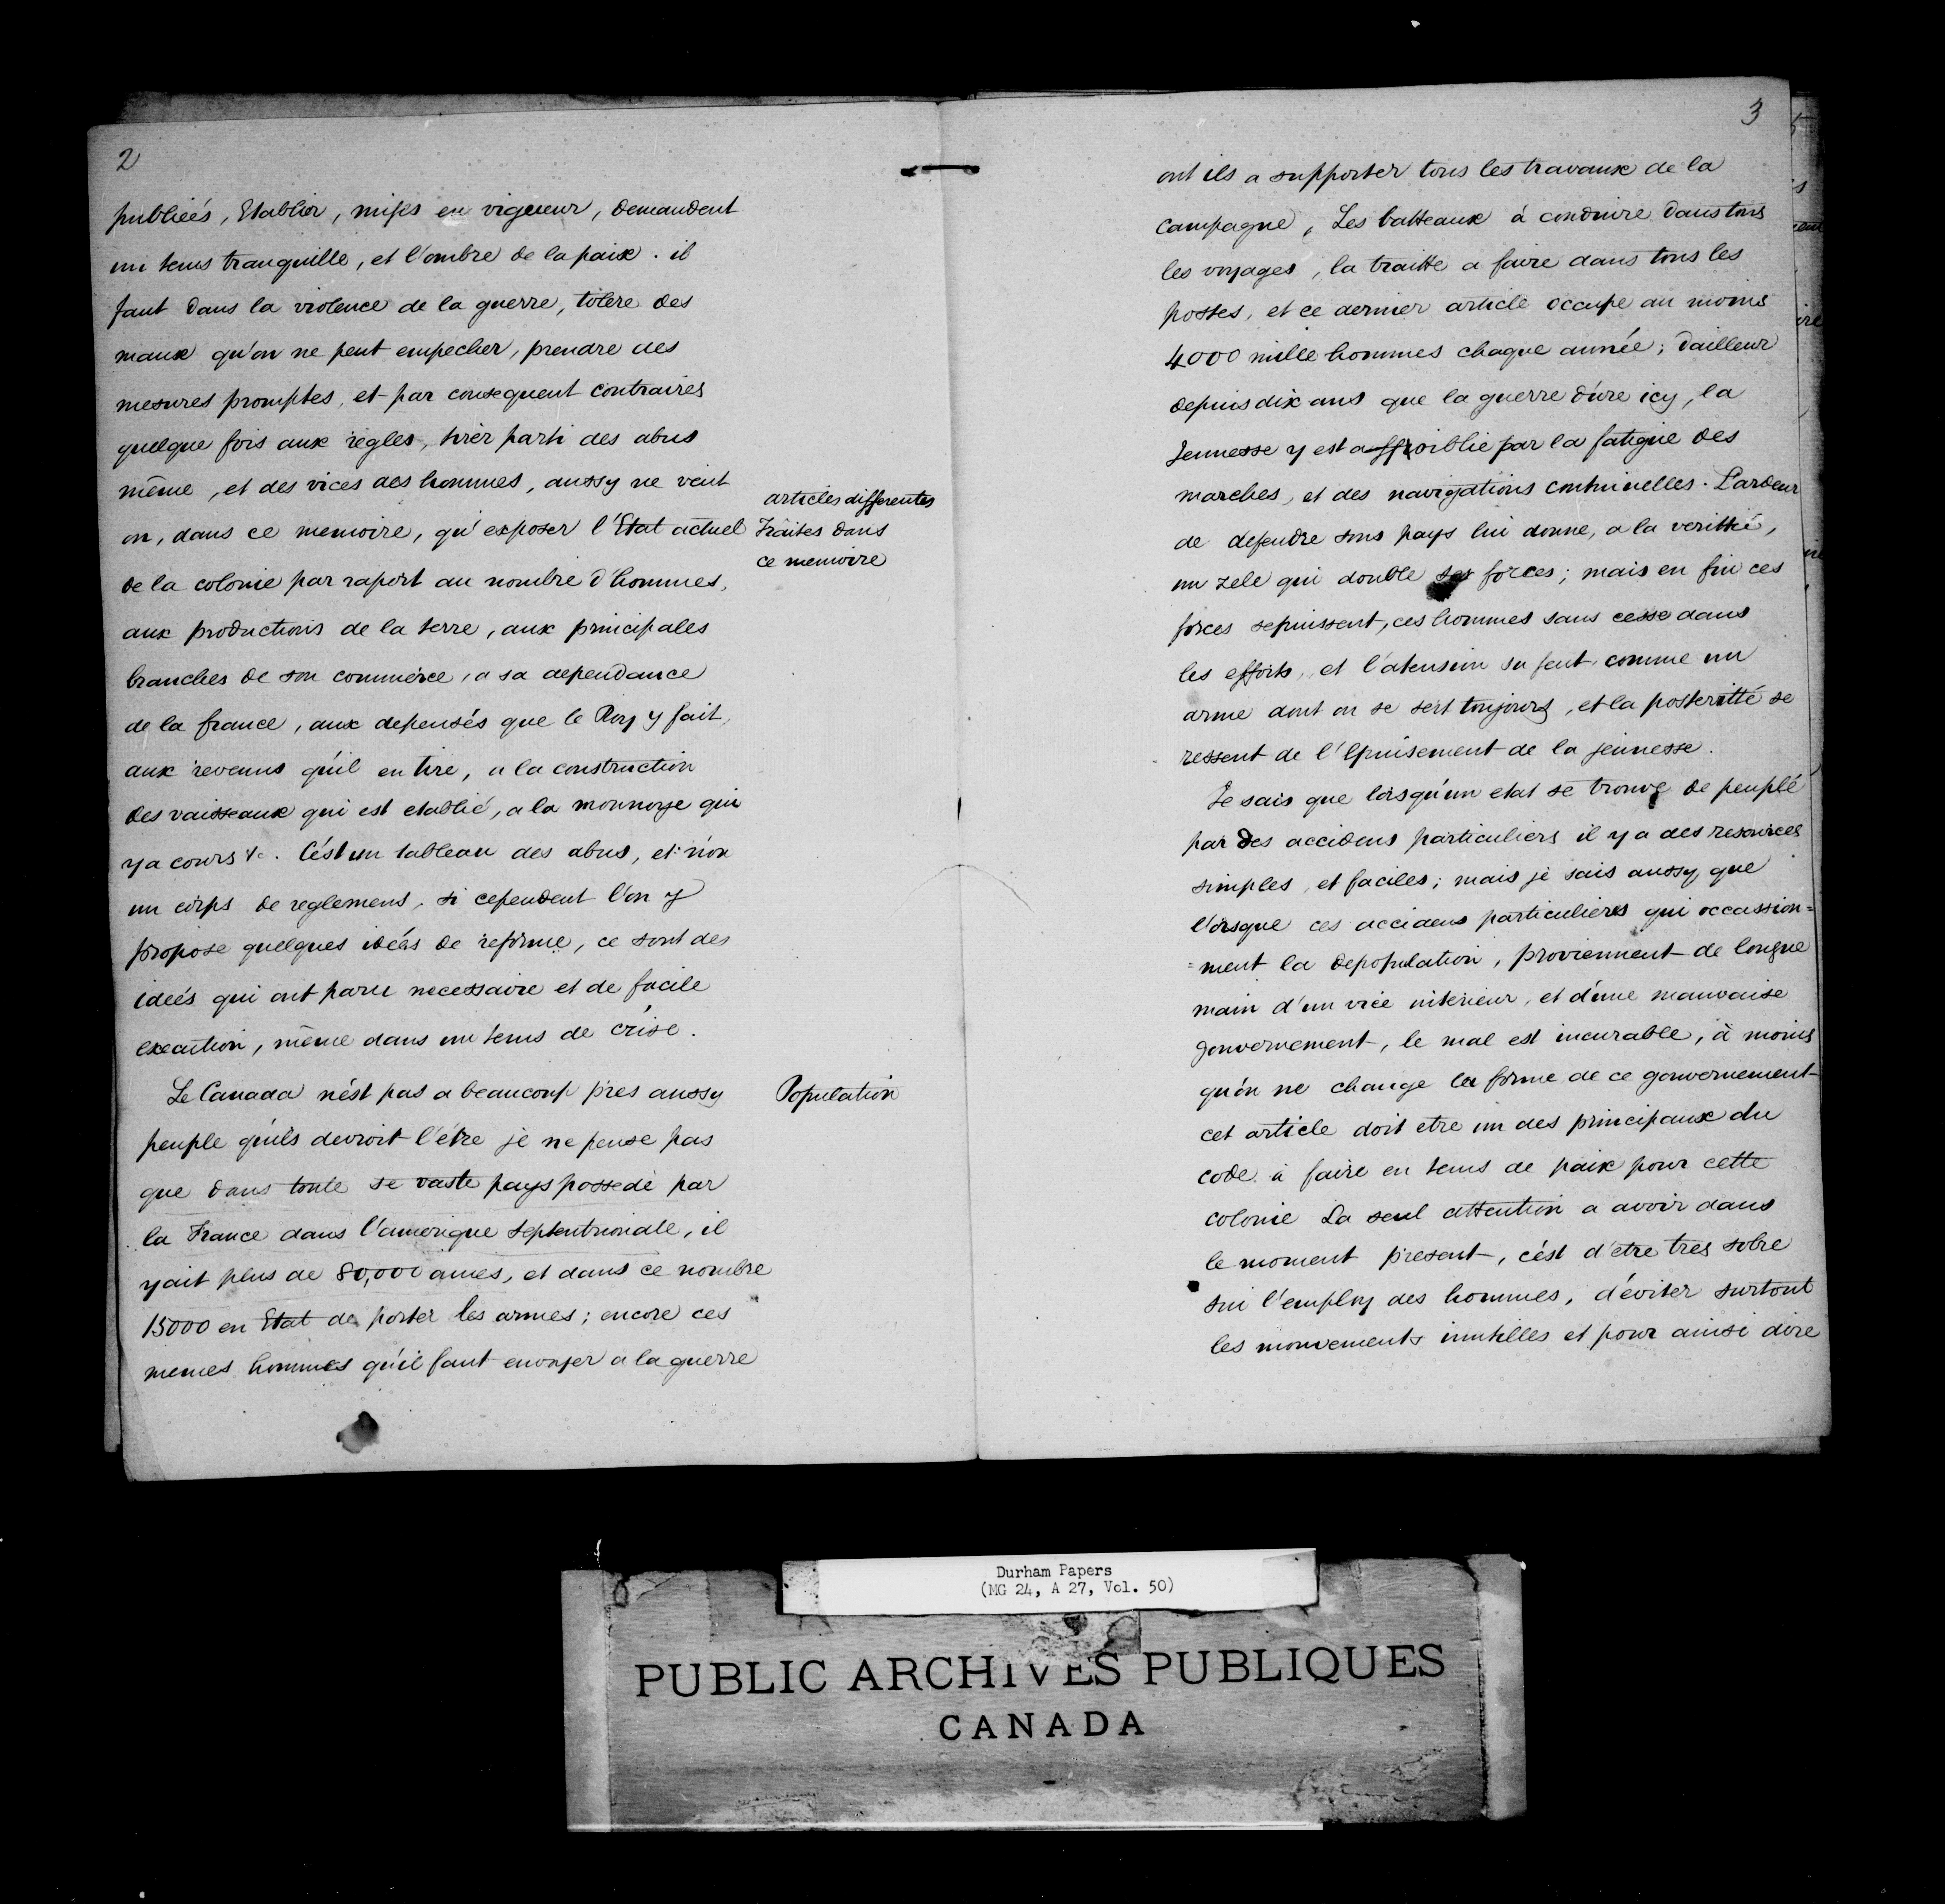 2
publiées, Etablir, mises en vigueur, demandent
un tems tranquille, et l'ombre de la paix. il
faut dans la violence de la guerre, tolere des
maux qu'on ne peut empecher, prendre des
mesures promptes, et par consequent contraires
quelque fois aux règles, tirèr parti des abus
même, et des vices des hommes, aussy ne veut
on, dans ce memoire, qu'exposer l'Etat actuel
articles differentes
Traites dans
ce memoire
de la colonie par raport au nombre d'hommes,
aux productions de la terre, aux principales
branches de son commerce, a sa dependance
de la france, aux depensés que le Roy y fait,
aux revenus qu'il en tire, a la construction
des vaisseaux qui est etablié, a la monnoye qui
y a cours &c. C'est un tableau des abus, et non
un corps de reglemens, si cependent l'on y
propose quelques idéés de reforme, ce sont des
ideés qui ont paru necessaire et de facile
execution, même dans un tems de crise.
Le Canada n'ést pas a beaucoup près aussy
Population
peuple qu'ils devroit l'étre je ne pense pas
que dans toute se vaste pays possedé par
la France dans l'amerique septentrionale, il
y ait plus de 80,000 ames, et dans ce nombre
15000 en Etat de porter les armes; encore ces
memes hommes qu'il faut envoyer a la guerre
3
ont ils a supporter tous les travaux de la
campagne, Les batteaux à conduire dans tous
les voyages, la traitte a faire dans tous les
postes, et ce dernier article occupe au moins
4000 mille hommes chaque année; dailleur
depuis dix ans que la guerre dure icy, la
Jeunesse y est affoiblie par la fatigue des
marches, et des navigations continuelles. L'ardeur
de defendre sons pays lui donne, a la verittié,
un zele qui double ses forces; mais en fin ces
forces sepuissent, ces hommes sans cesse dans
les efforts, et l'atension su sent comme un
arme dont on se sert toujours, et la posteritté se
ressent de l'Epuisement de la jeunesse.
Je sais que lorsqu'un etat se trouve de peuplé
par des accidens particuliers il y a des resources
simples, et faciles; mais je sais aussy que
l'orsque ces accidens particuliers qui occassion=
=nent la depopulation, proviennent de longue
main d'un vice interieur, et d'une mauvaise
gouvernement, le mal est incurable, à moins
qu'on ne change la forme de ce gouvernement
cet article doit etre un des principaux du
code à faire en tems de paix pour cette
colonie La seul attention a avoir dans
le moment present, c'ést d'etre tres sobre
sur l'employ des hommes, d'éviter surtout
les mouvements inutilles et pour ainsi dire
Durham Papers
(MG 24, A 27, Vol. 50)
PUBLIC ARCHIVES PUBLIQUES
CANADA